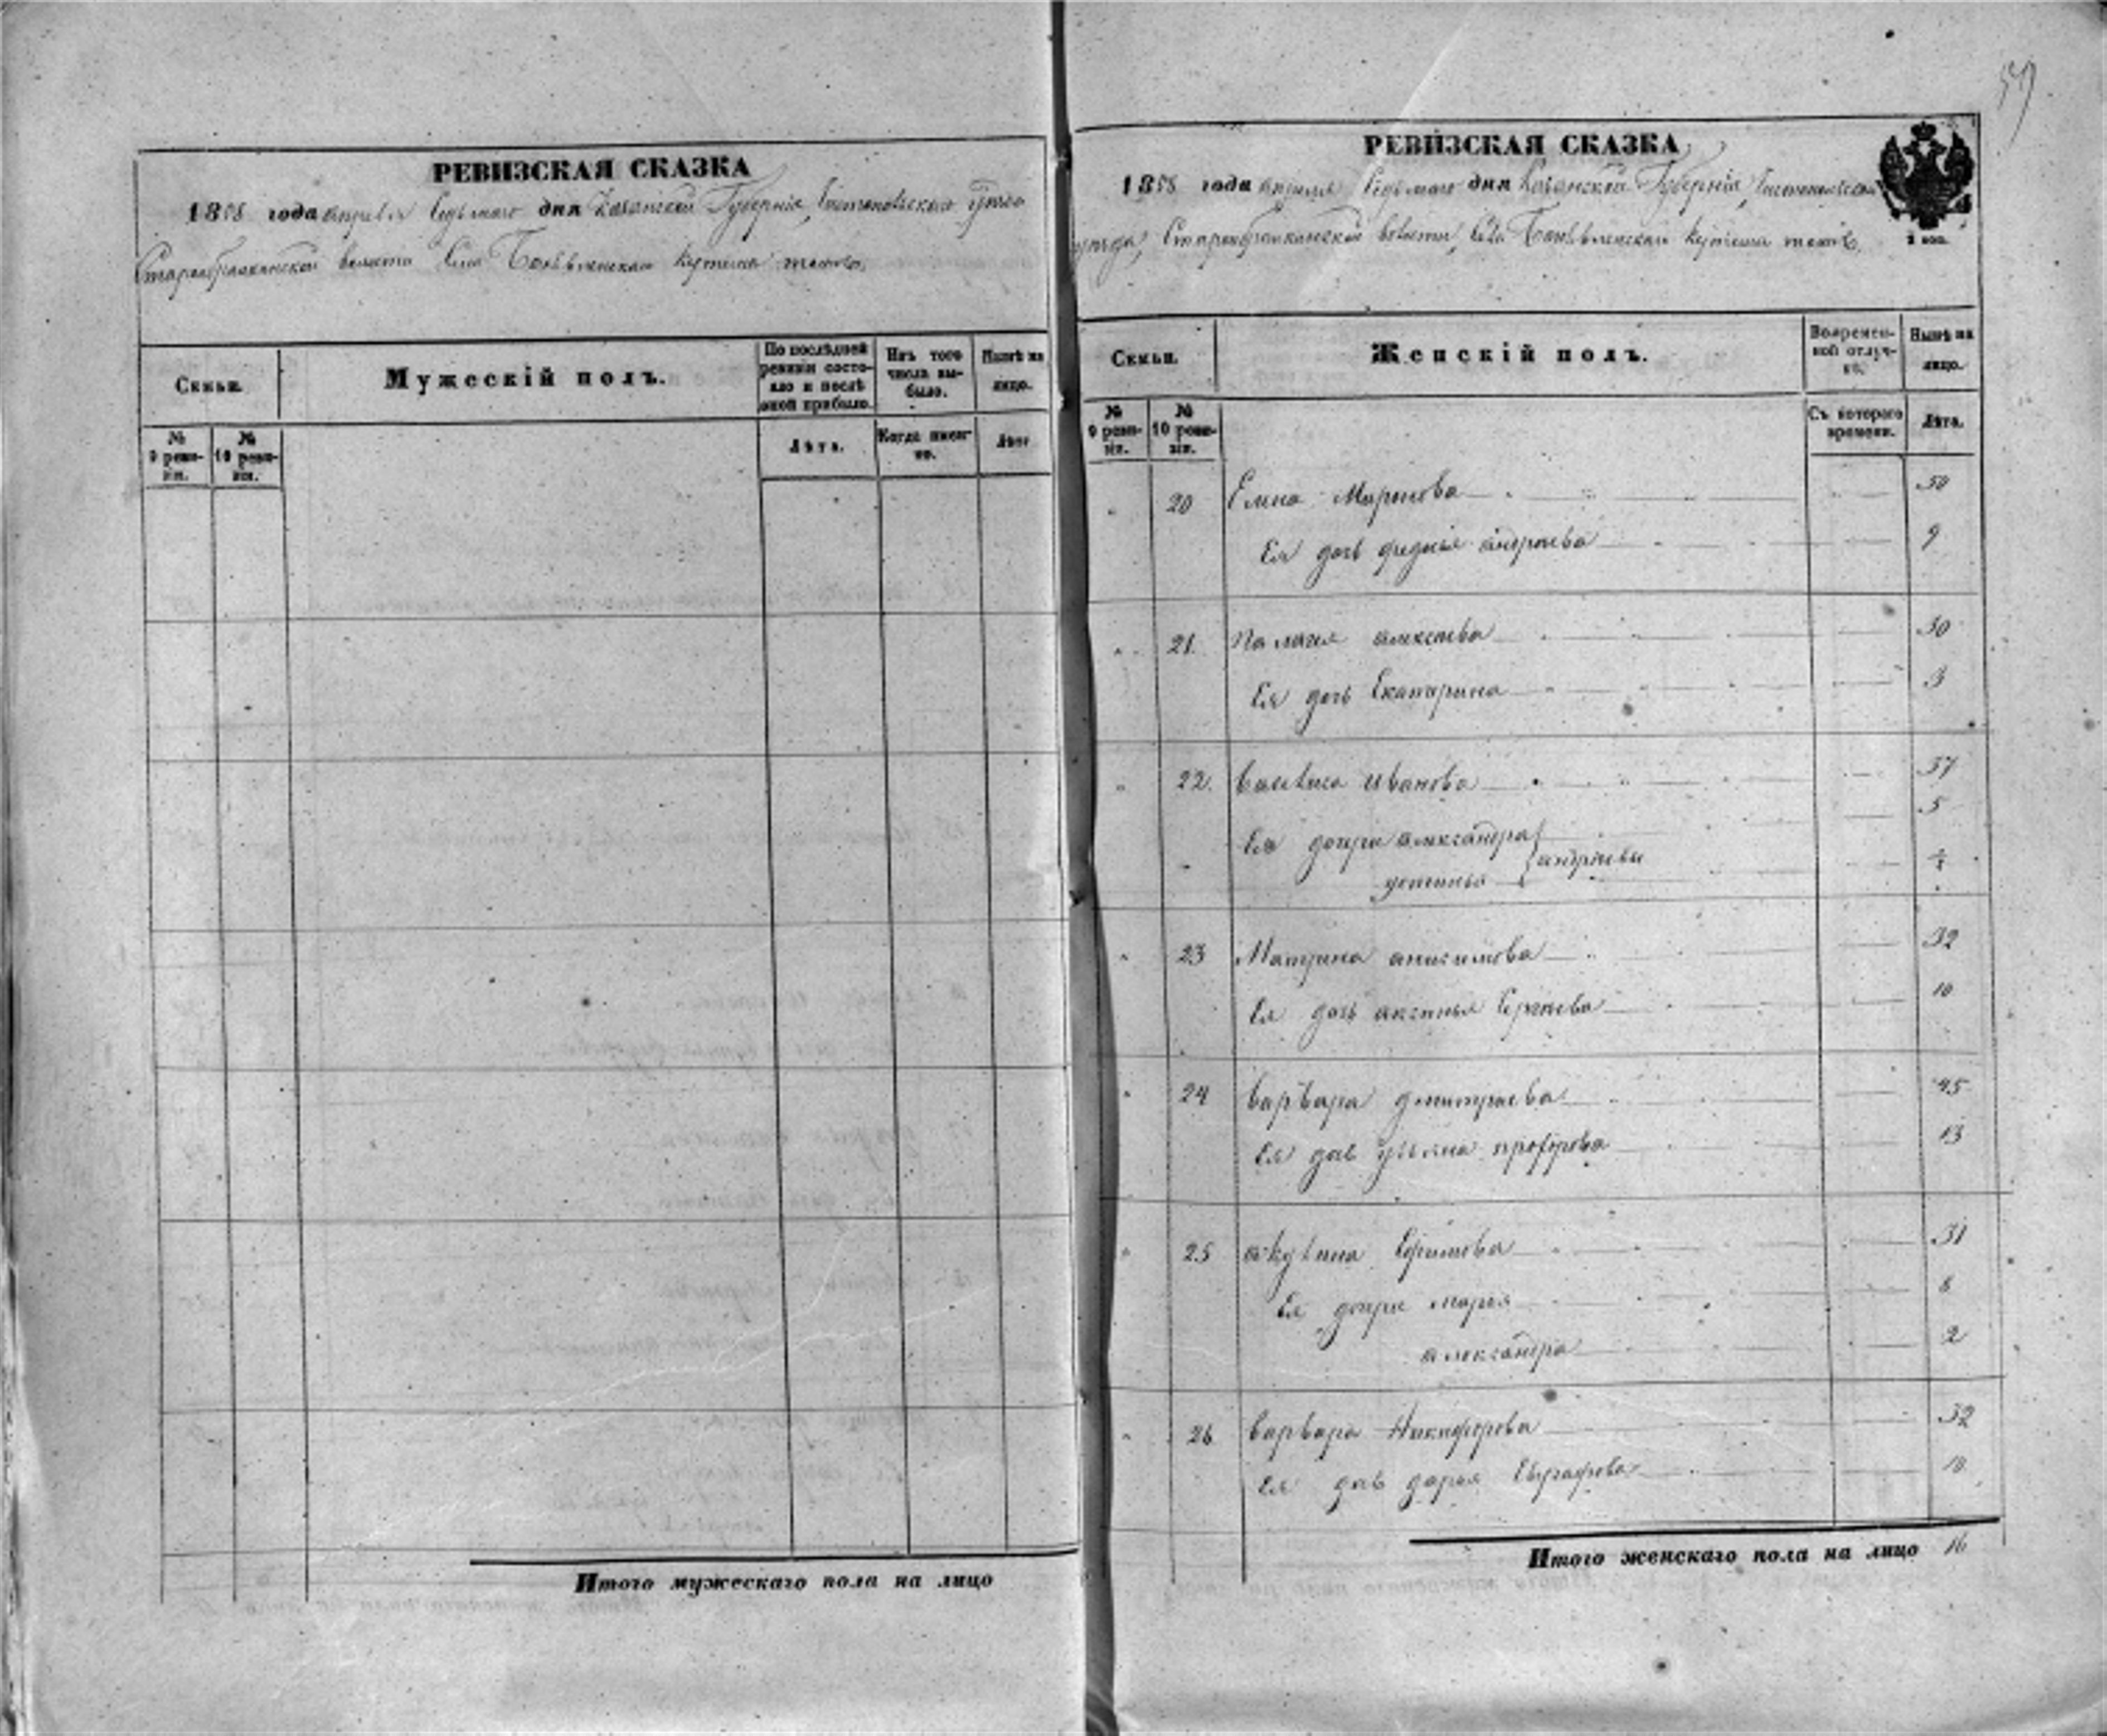 59
РЕВИЗСКАЯ СКАЗКА
1858 года апреля Седьмаго дня Казанской Губерніи, Чистопольскаго уезда
волости Села Богоявленскаго
Семьи.
Мужескій полъ.
По послѣдней ревизіи состояло и послѣ оной прибыло.
Изъ того числа выбыло.
Нынѣ на лицо.
№ 9 ревизіи.
№ 10 ревизіи.
Лѣта.
Когда именно.
Лѣта
Итого мужескаго пола на лицо
РЕВИЗСКАЯ СКАЗКА
1858 года апреля Седьмаго дня Казанской Губерніи, Чистопольскаго
уезда, волости, Села Богоявленскаго
2 коп.
Семьи.
Женскій полъ.
Вовременной отлучкѣ.
Нынѣ на лицо.
№ 9 ревизіи.
№ 10 ревизіи.
Съ котораго времени.
Лѣта.
20 Елена Миронова 50
Ея дочь андреева 9
21. Палагея алексеева 30
Ея дочь Екатерина 3
22. Василиса Иванова 37
5
Ея дочери александра
андреевы
устинья
23 Матрена анисимова 32
Ея дочь аксинья Сергеева 10
24 варвара дмитриева 45
Ея дочь ульяна прохорова 13
25 акулина Ефимова 31
Ея дочери марья 6
александра 2
26 варвара Никифорова 32
Ея дочь дарья Евграфова 10
Итого женскаго пола на лицо 16